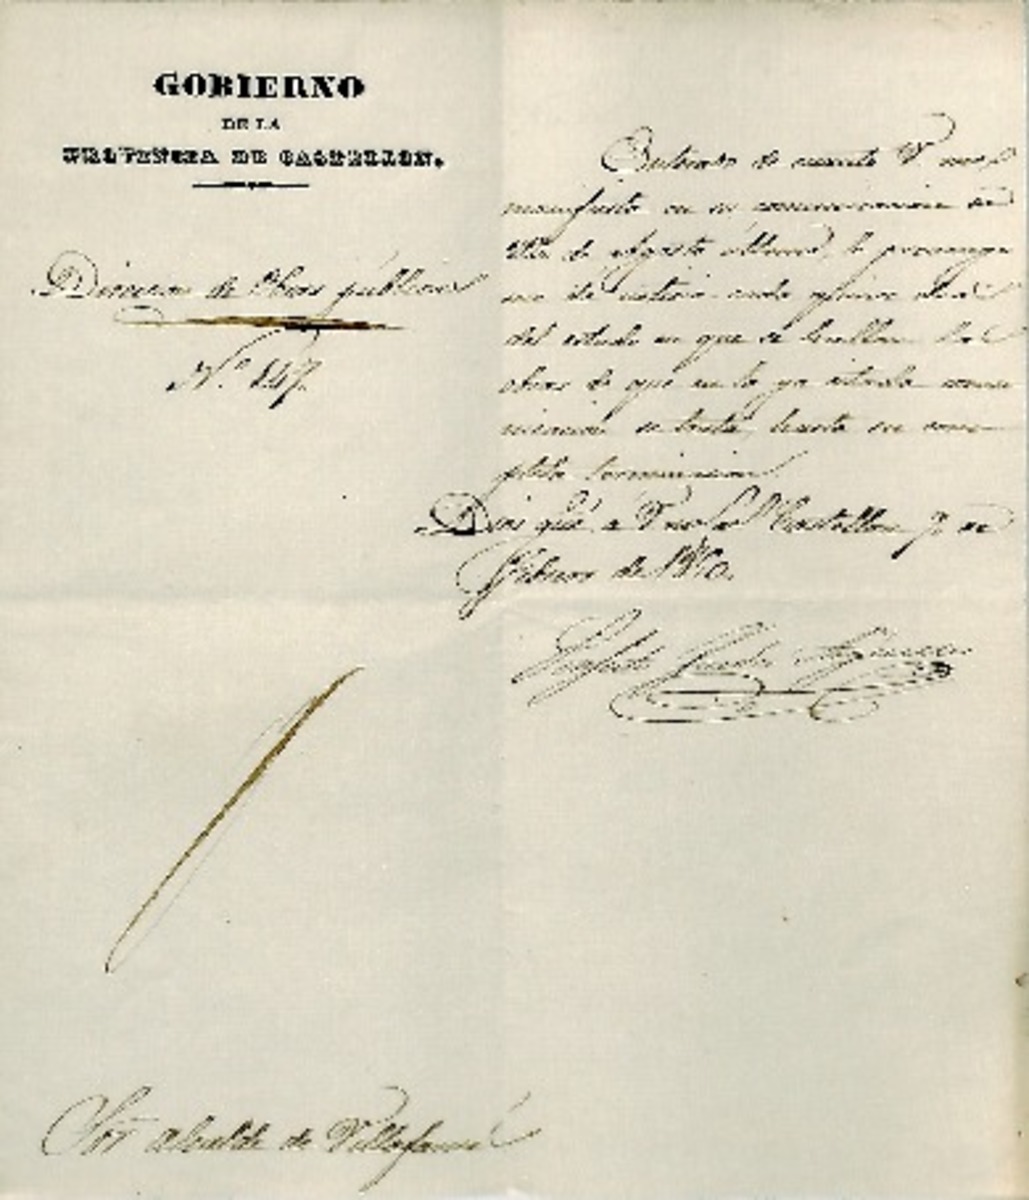 GOBIERNO
DE LA
PROVINCIA DE CASTELLON.
Direccion de Obras públicas
Nº 147.
Enterado de cuanto V me
manifiesta en su comunicacion de
de Agosto último, le prevengo
me dé noticia cada quince dias
del estado en que se hallan las
obras de que en la ya citada comu
nicacion se trata, hasta su com
pleta terminacion.
Dios gue á V Castellon 7 de
Febrero de
Sor Alcalde de Villafamés